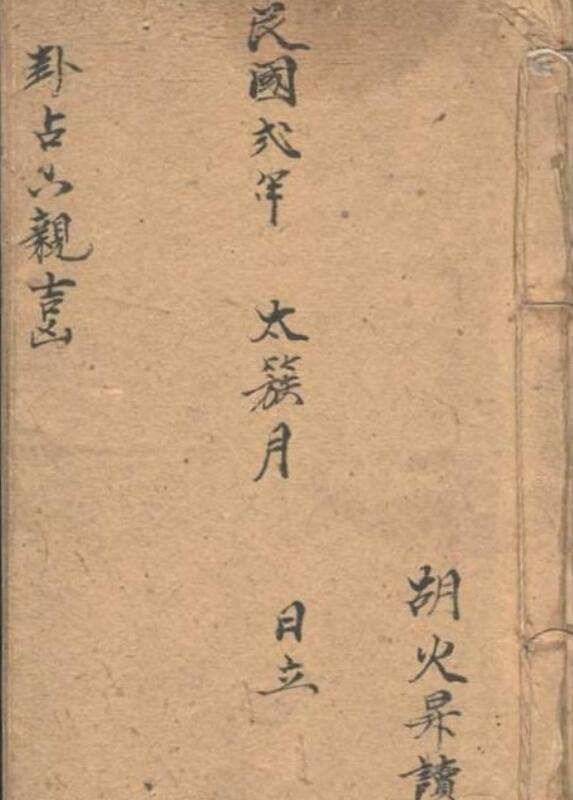 胡火昇讀
民國弍年 太簇月 日立
卦占六親吉凶